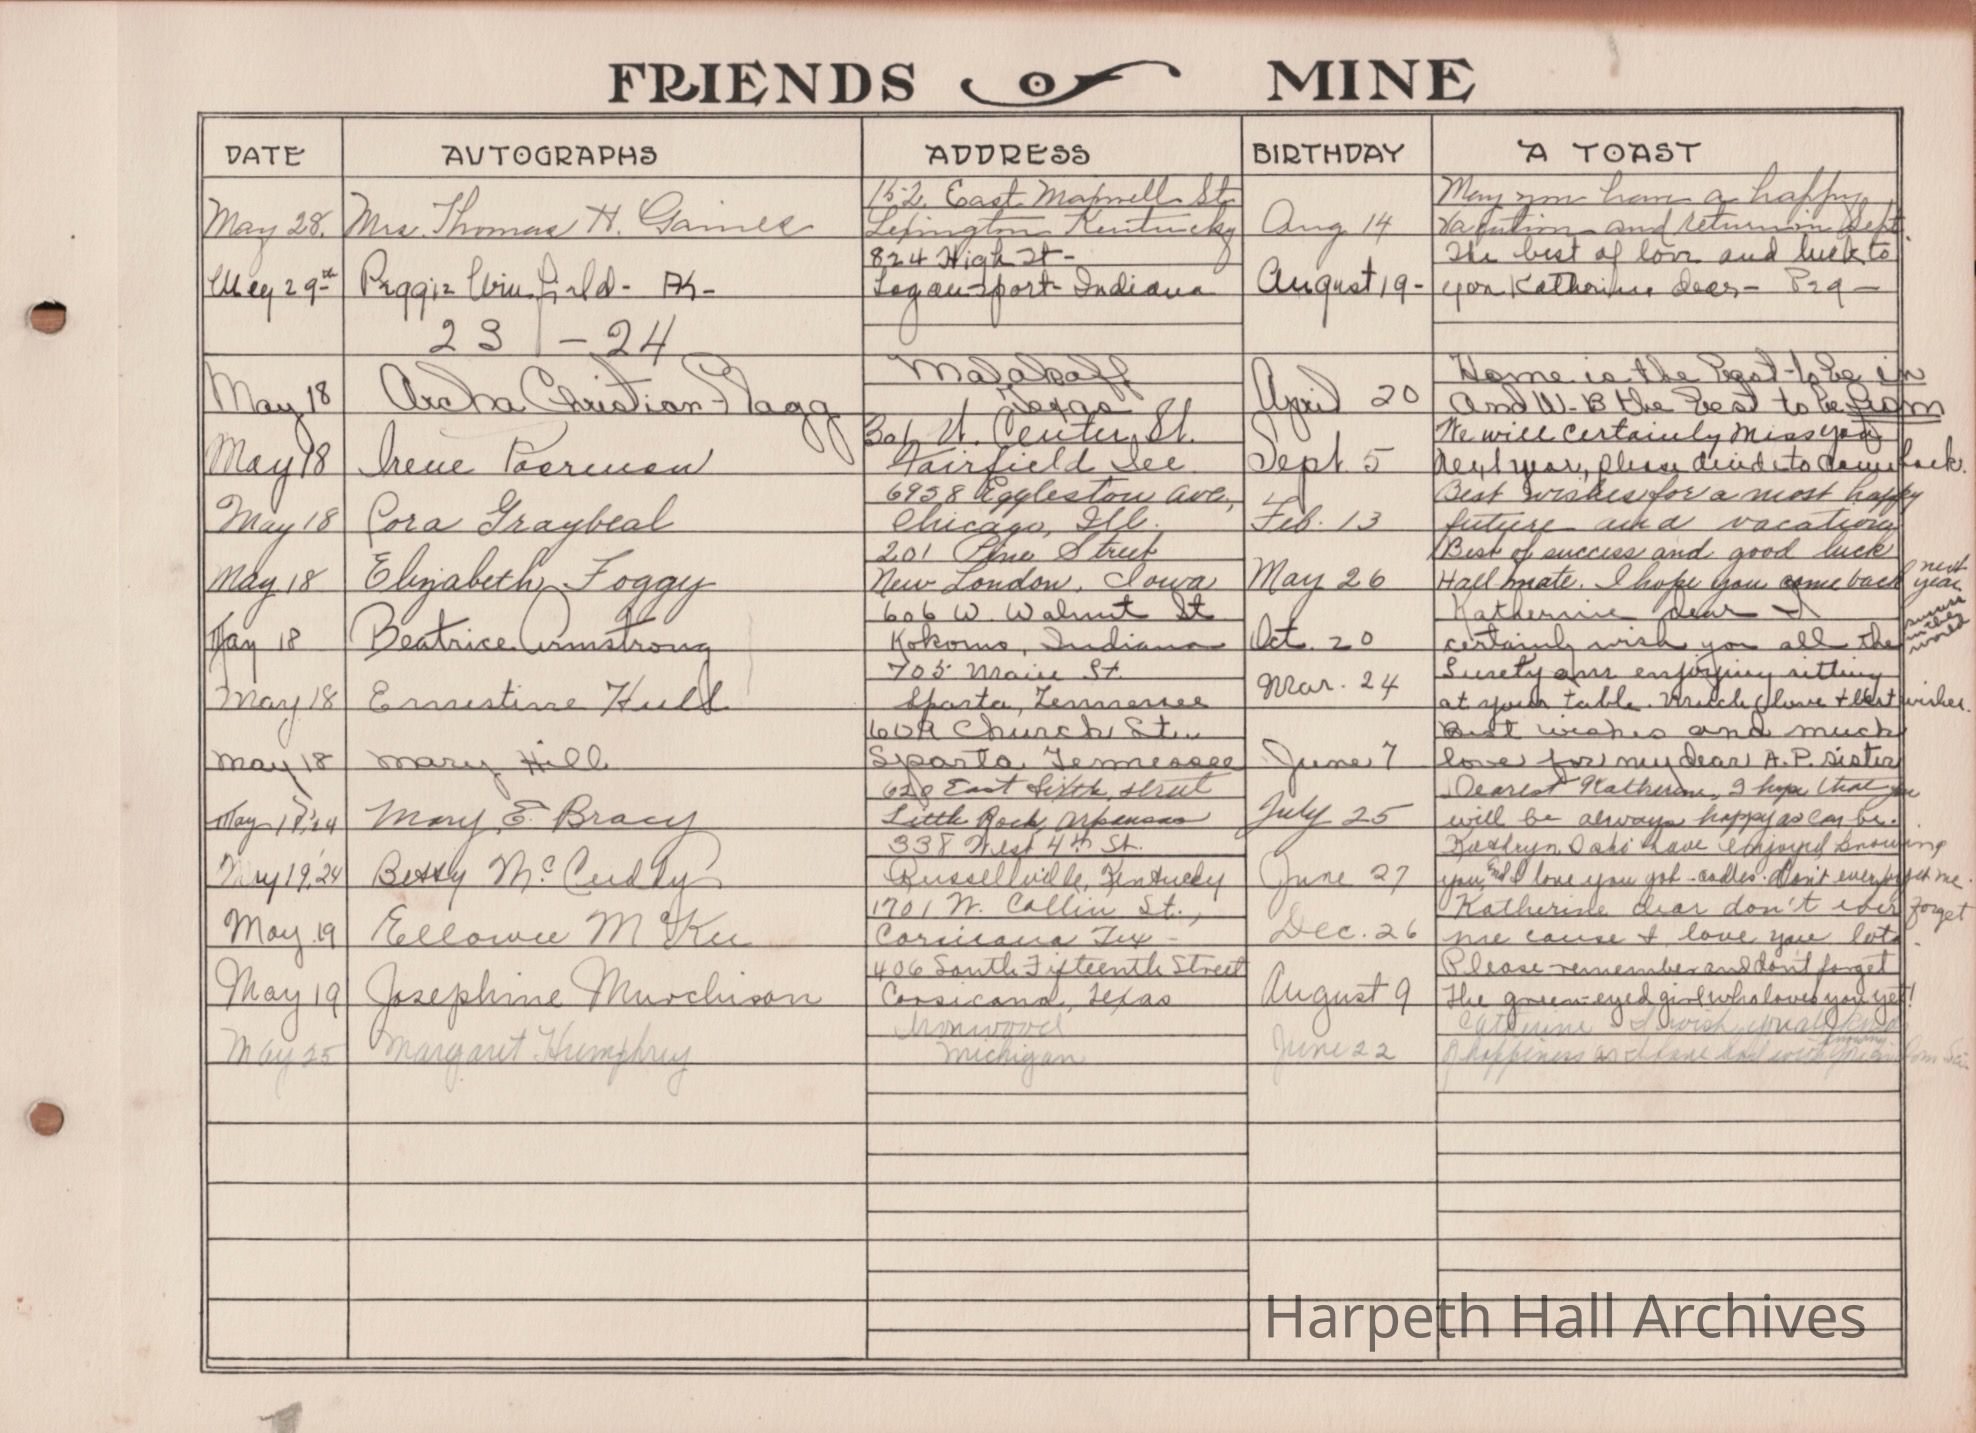 FRIENDS of MINE
DATE AUTOGRAPHS ADDRESS BIRTHDAY A TOAST
152 East Maxwell St. May you have a happy
May 28. Mrs. Thomas H. Gaines Lexington Kentucky Aug 14 vacation and return in Sept.
824 High St- The best of love and luck to
May 29th Peggie Winfield- Logansport- Indiana August 19- you Katherine dear- Peg-
23 - 24
Malakoff Home is the best to be in
May 18 Archa Christian Flagg Texas April 20 And W-B the best to be from
N. Center St. We will certainly miss you
May 18 Irene Poorman Fairfield Sept. 5 next year, please decide to come back.
6958 Eggleston Ave., Best wishes for a most happy
May 18 Cora Graybeal Chicago, Ill. Feb. 13 future and vacation
201 Pine Street Best of success and good luck
May 18 Elizabeth Foggy New London, Iowa May 26 Hall mate. I hope you come back next year
606 W. Walnut St Katherine dear I
May 18 Beatrice Armstrong Kokomo, Indiana Oct. 20 certainly wish you all the
705 Main St. Surely am enjoying sitting
May 18 Ernestine Hull Sparta, Tennessee Mar. 24 at your table. Much love + best wishes.
Church St. Best wishes and much
May 18 Mary Hill Sparta Tennessee June 7 love for my dear A.P. sister
620 East Sixth street Dearest Katherine, I hope that you
May 18,'24 Mary E. Bracy Little Rock, Arkansas July 25 will be always happy as can be.
338 West 4th St. Kathryn, I have enjoyed knowing
May 19,'24 Betty McCuddy Russellville, Kentucky June 27 you and I love you gob-oodles. Don't ever forget me.
1701 W. Collin St., Katherine dear don't ever forget
May 19 Ellowee McKee Corsicana Tex- Dec. 26 me cause I love you lots.
406 South Fifteenth Street Please remember and don't forget
May 19 Josephine Murchison Corsicana, Texas August 9 the green-eyed girl who loves you yet!
Ironwood Catherine I wish you all kinds
May 25 Margaret Humphrey Michigan June 22 of happiness as I have had with
Harpeth Hall Archives